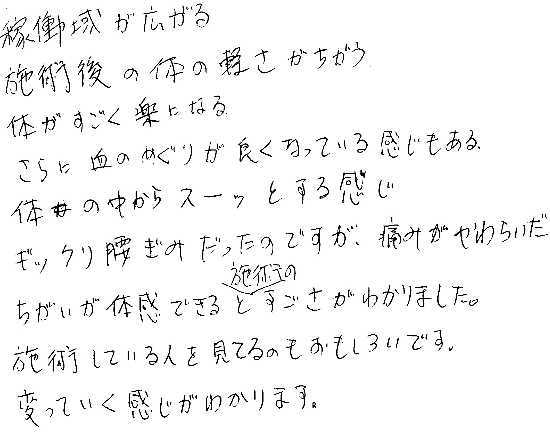 稼働域が広がる
施術後の体の軽さがちがう
体がすごく楽になる
さらに血のめぐりが良くなっている感じもある
体の中からスーッとする感じ
ギックリ腰ぎみだったのですが、痛みがやわらいだ
ちがいが体感できると施術のすごさがわかりました。
施術している人を見てるのもおもしろいです。
変っていく感じがわかります。